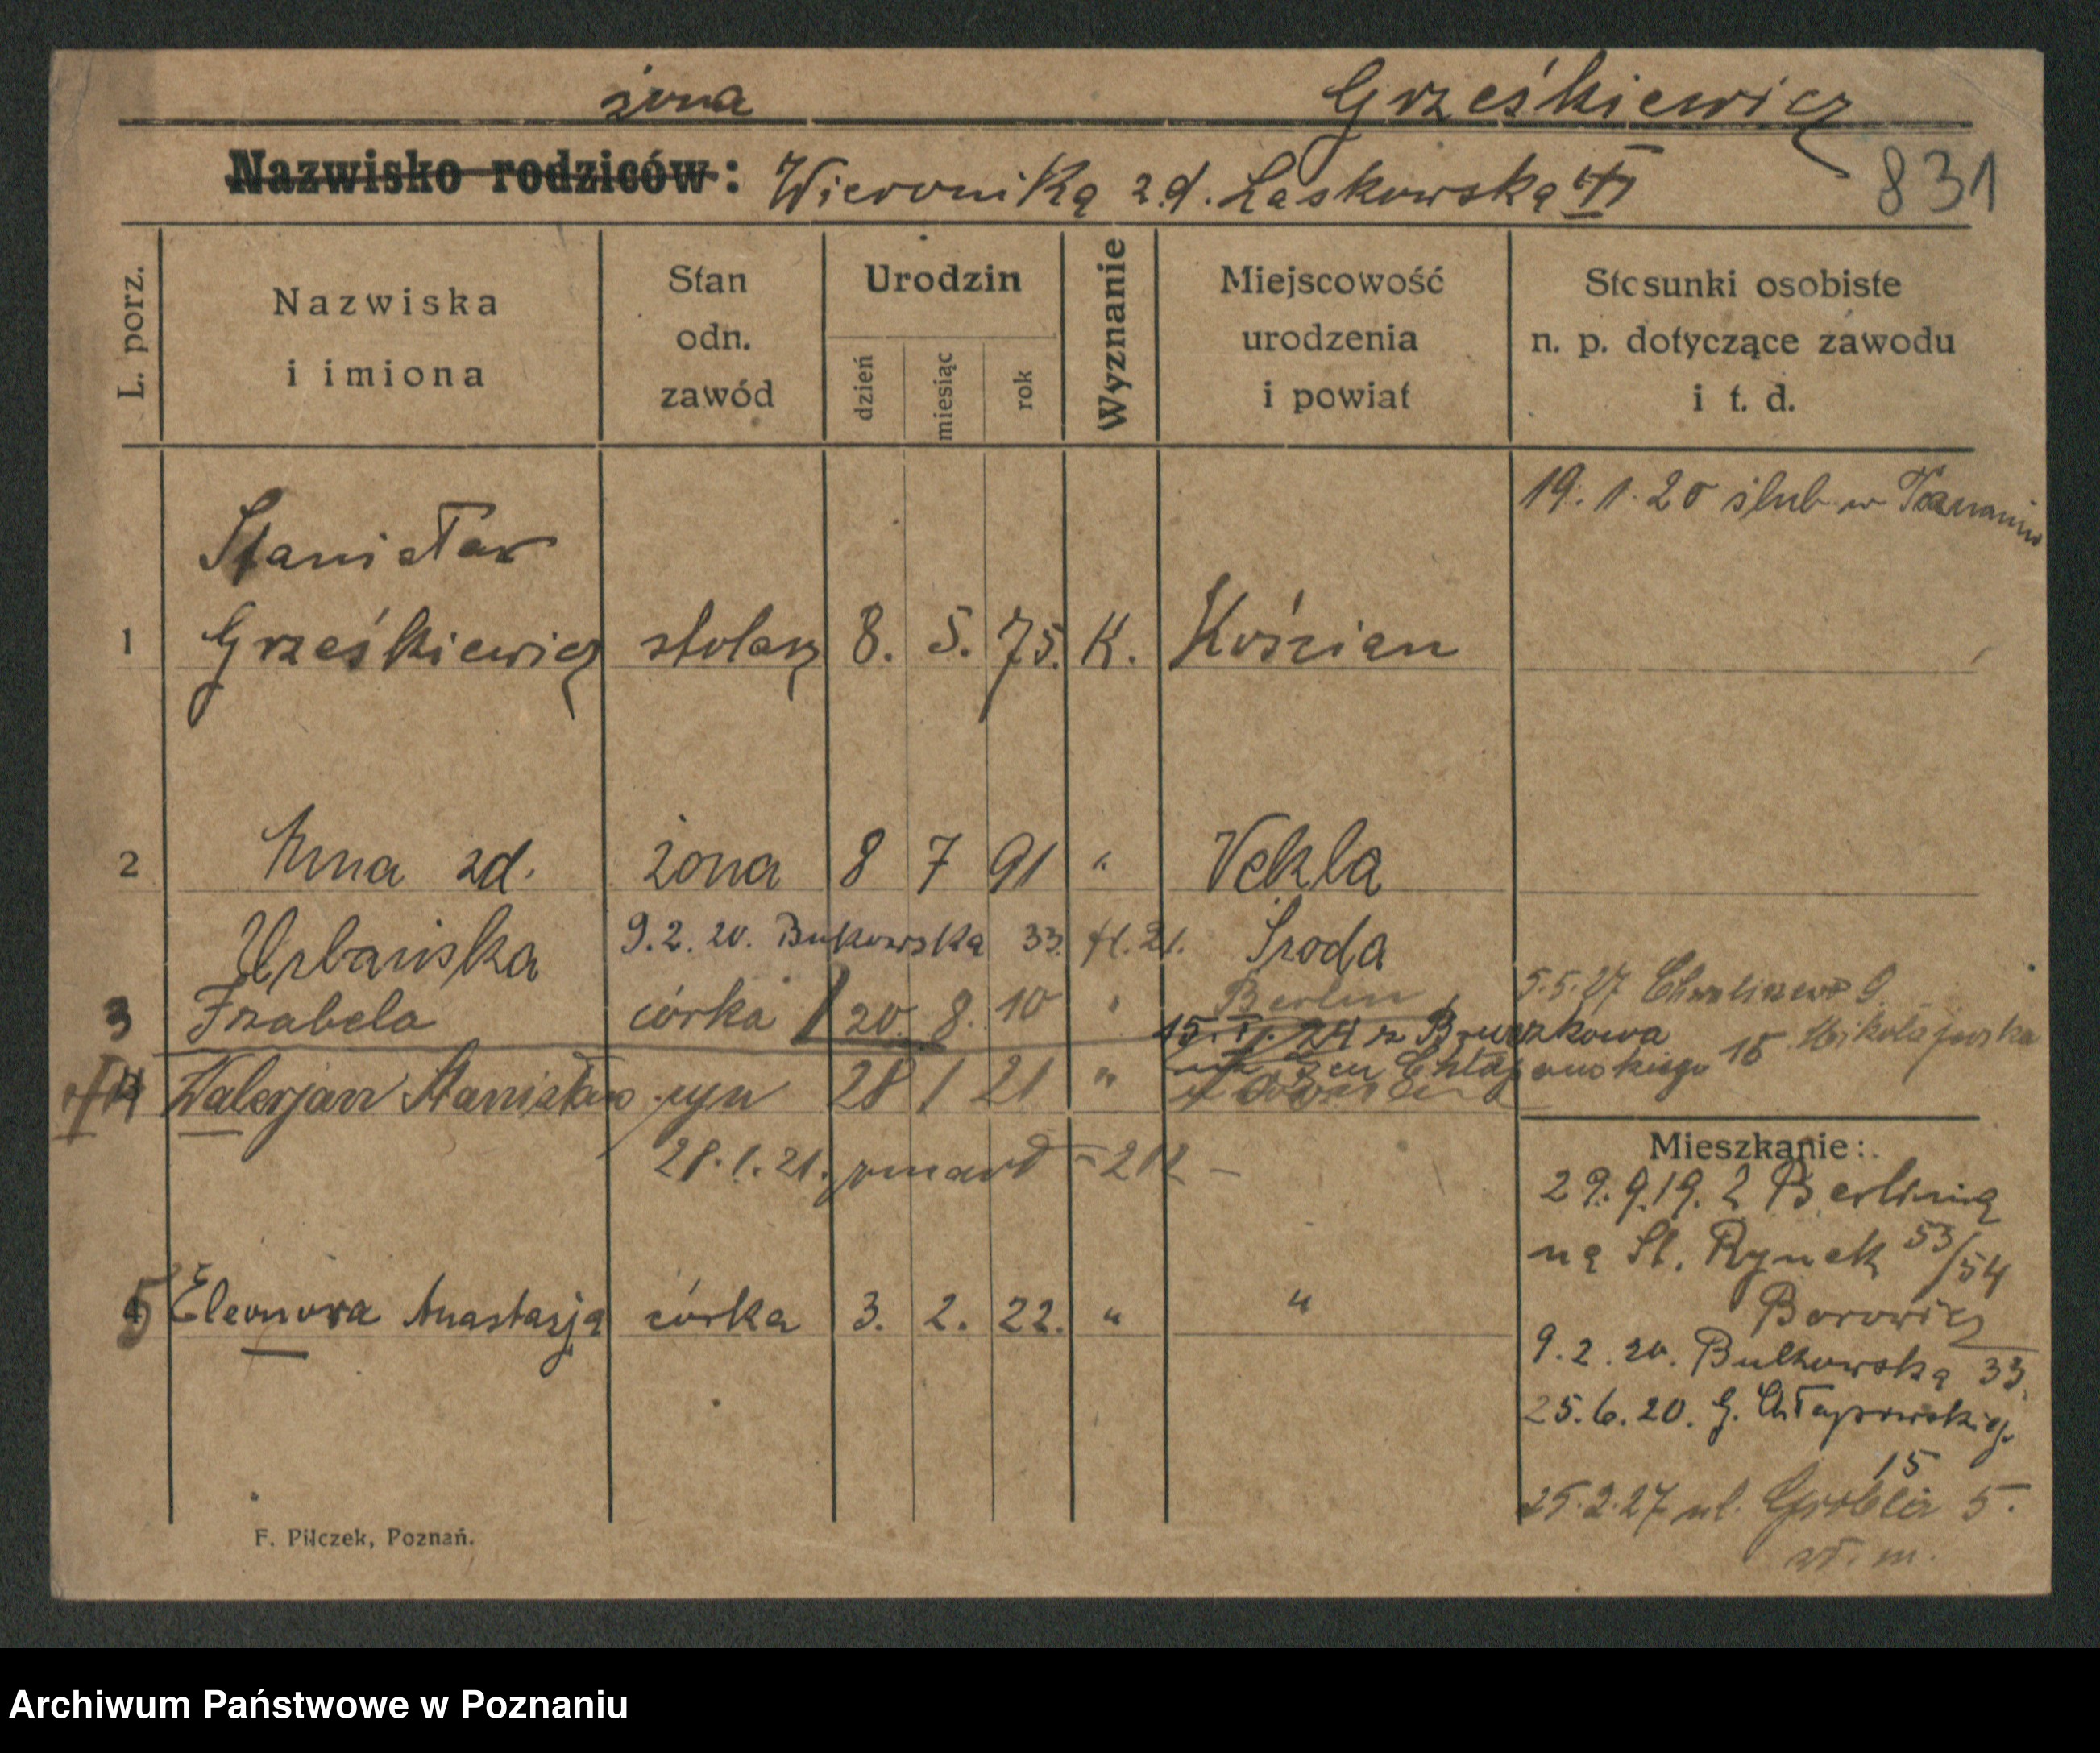 żona Grześkiewicz
Nazwisko rodziców: Wieronika zd. Laskowska
831
L. porz.
Nazwiska i imiona
Stan odn. zawód
Urodzin
dzień miesiąc rok
Wyznanie
Miejscowość urodzenia i powiat
Stosunki osobiste n. p. dotyczące zawodu i t. d.
19. 1. 20 ślub w Poznaniu
Stanisław
1 Grześkiewicz stolarz 8. 5. 75. K. Kościan
2 Anna zd. żona 8 7 91 " Vekla
Urbańska 9. 2. 20. Bukowska 33. Środa
3 Izabela córka 20. 8. 10 " Berlin
5.5.27 Chwaliszewo 9
24 z Bruczkowa
Gen Chłapowskiego 15 Mikołajewska
4 Walerjan Stanisław syn 28 1 21 "
28. 1. 21. zmarł - 212 -
Mieszkanie:
29. 9. 19. z Berlina
na St. Rynek 53/54
Borowicz
5 Eleonora Anastazja córka 3. 2. 22. " "
9. 2. 20. Bukowska 33.
25. 6. 20. G. Chłapowskiego
15
25. 2. 27 ul. Grobla 5.
wł. m.
F. Pilczek, Poznań.
Archiwum Państwowe w Poznaniu